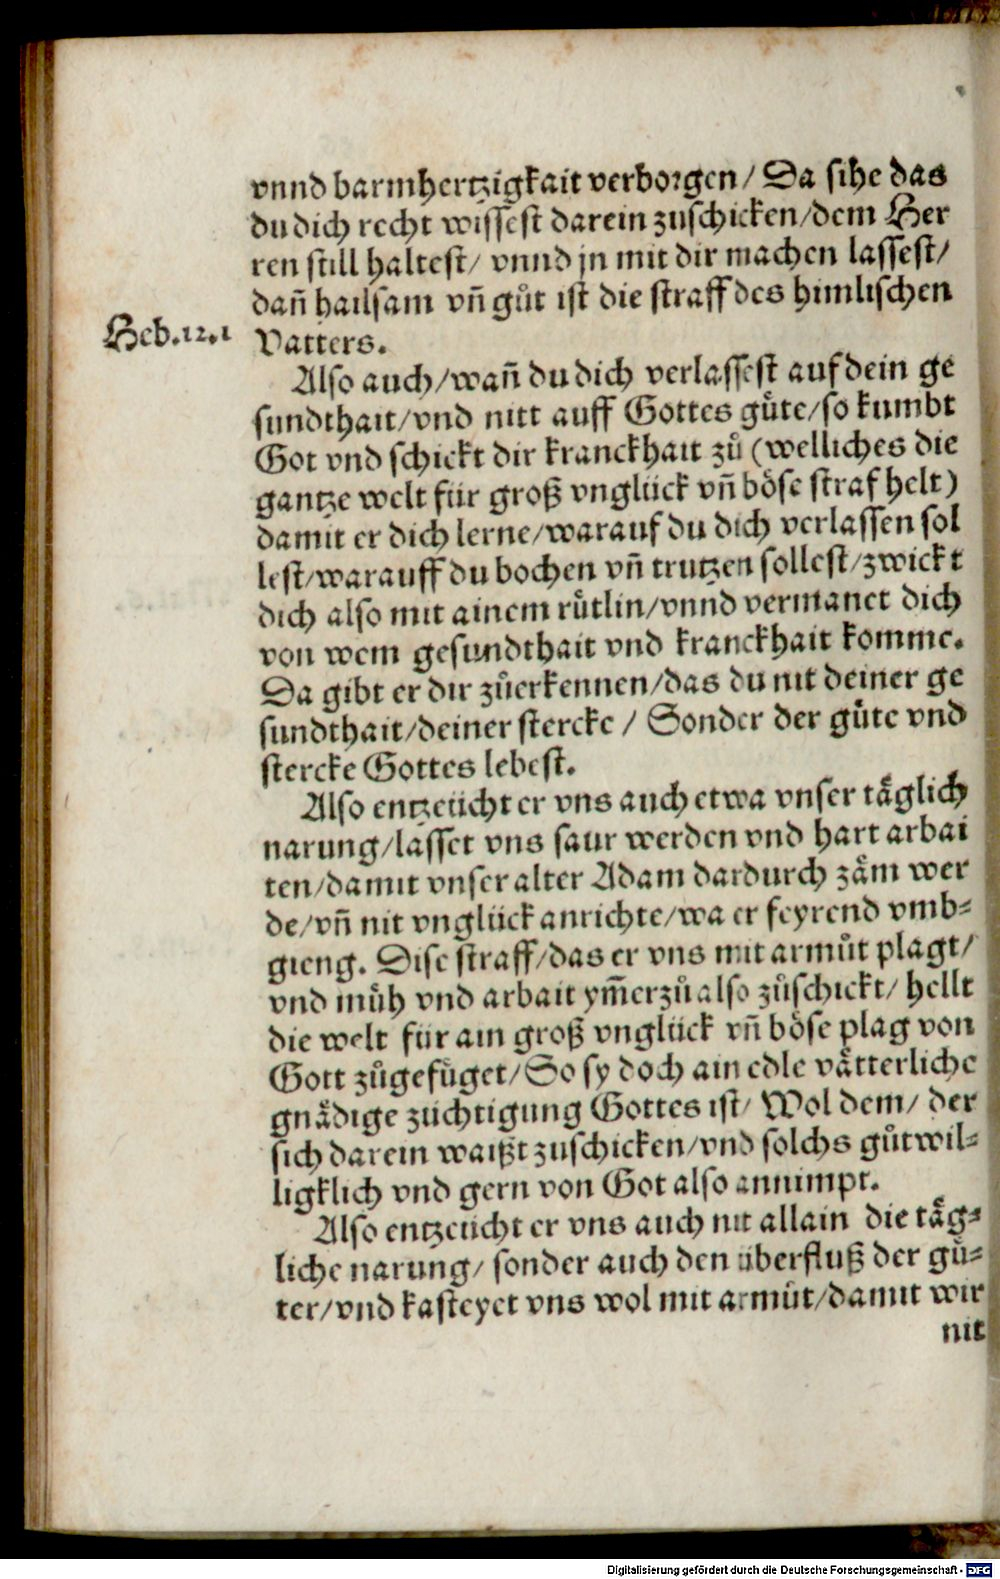 vnnd barmhertzigkait verborgen / Da sihe das
du dich recht wissest darein zuschicken/dem Her
ren still haltest/ vnnd jn mit dir machen lassest/
dañ hailsam vñ gůt ist die straff des himlischen
Heb.12.1 Vatters.
Also auch/wañ du dich verlassest auf dein ge
sundthait/vnd nitt auff Gottes gůte/so kumbt
Got vnd schickt dir kranckhait zů (welliches die
gantze welt für groß vnglück vñ böse straf helt)
damit er dich lerne/warauf du dich verlassen sol
lest/warauff du bochen vñ trutzen sollest/zwickt
dich also mit ainem růtlin/vnnd vermanet dich
von wem gesundthait vnd kranckhait komme.
Da gibt er dir zůerkennen/das du nit deiner ge
sundthait/deiner stercke / Sonder der gůte vnd
stercke Gottes lebest.
Also entzeücht er vns auch etwa vnser täglich
narung/lässet vns saur werden vnd hart arbai
ten/damit vnser alter Adam dardurch zäm wer
de/vñ nit vnglück anrichte/wa er feyrend vmb=
gieng. Dise straff/das er vns mit armůt plagt/
vnd můh vnd arbait ym̃erzů also zůschickt/ hellt
die welt für ain groß vnglück vñ böse plag von
Gott zůgefůget/So sy doch ain edle vätterliche
gnädige züchtigung Gottes ist/ Wol dem/ der
sich darein waißt zuschicken/vnd solchs gůtwil=
ligklich vnd gern von Got also annimpt.
Also entzeücht er vns auch nit allain die täg=
liche narung/ sonder auch den überfluß der gů=
ter/vnd kasteyet vns wol mit armůt/damit wir
nit
Digitalisierung gefördert durch die Deutsche Forschungsgemeinschaft - DFG